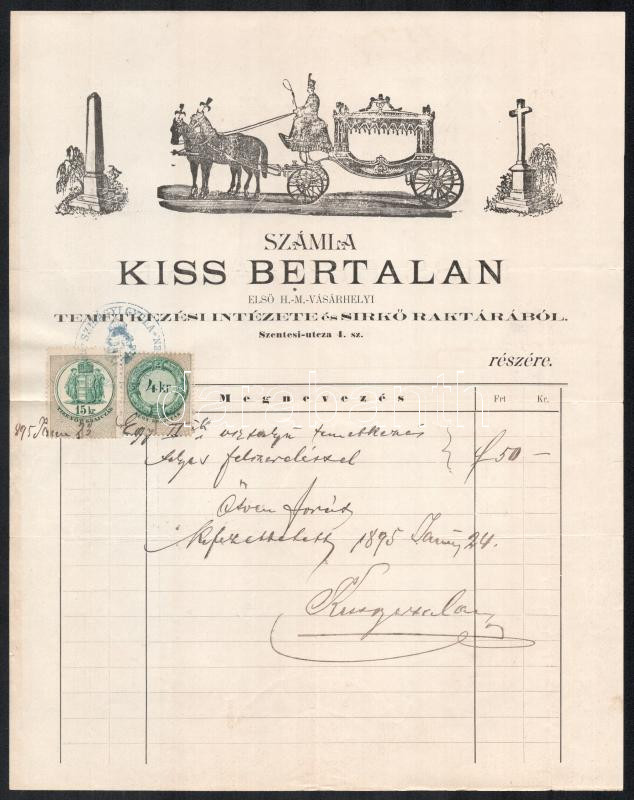 SZÁMLA
KISS BERTALAN
ELSŐ H.-M.-VÁSÁRHELYI
TEMETKEZÉSI INTÉZETE és SIRKŐ RAKTÁRÁBÓL.
Szentesi-utcza 4. sz.
részére.
15 kr
4 kr
Megnevezés Frt Kr.
895 Egy II osztályu temetkezés
teljes felszereléssel f 50 —
Ötven forint
kifizettetett 1895 Január 24.
Kiss Bertalan
darabanth